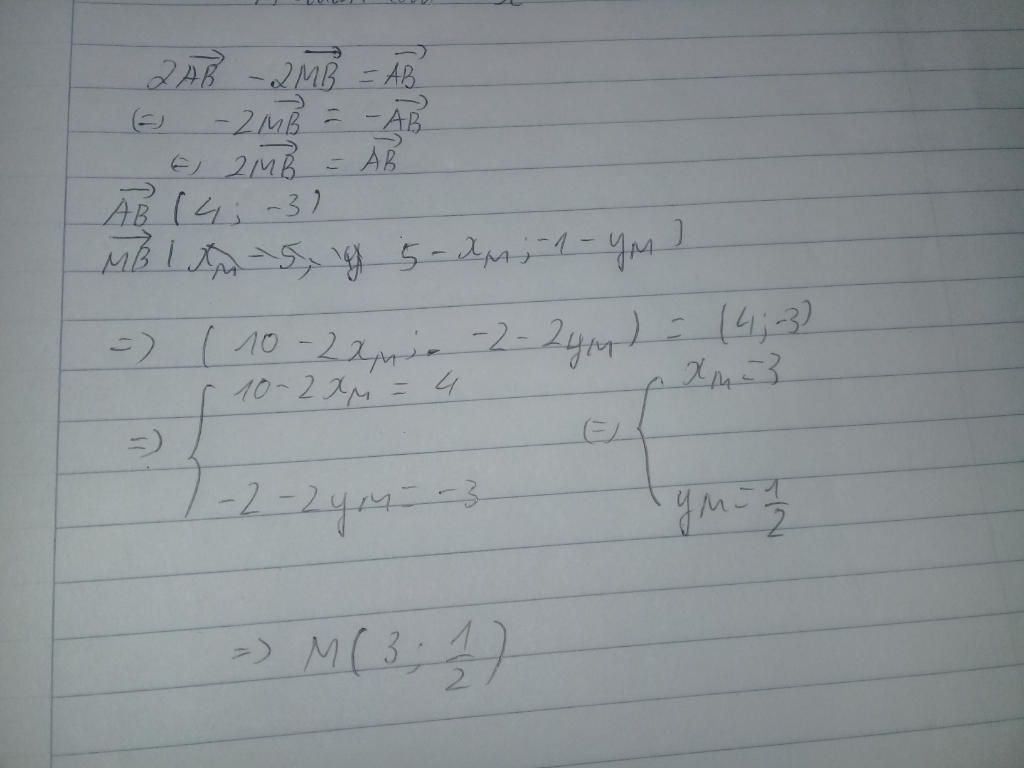 2AB⃗ - 2MB⃗ = AB⃗
(=) -2MB⃗ = -AB⃗
(=) 2MB⃗ = AB⃗
AB⃗ (4; -3)
MB⃗ ( 5 - xM; -1 - yM )
=> ( 10 - 2xM; -2 - 2yM ) = (4; -3)
=> { 10 - 2xM = 4 (=) { xM = 3
-2 - 2yM = -3 yM = 1/2
=> M( 3; 1/2 )